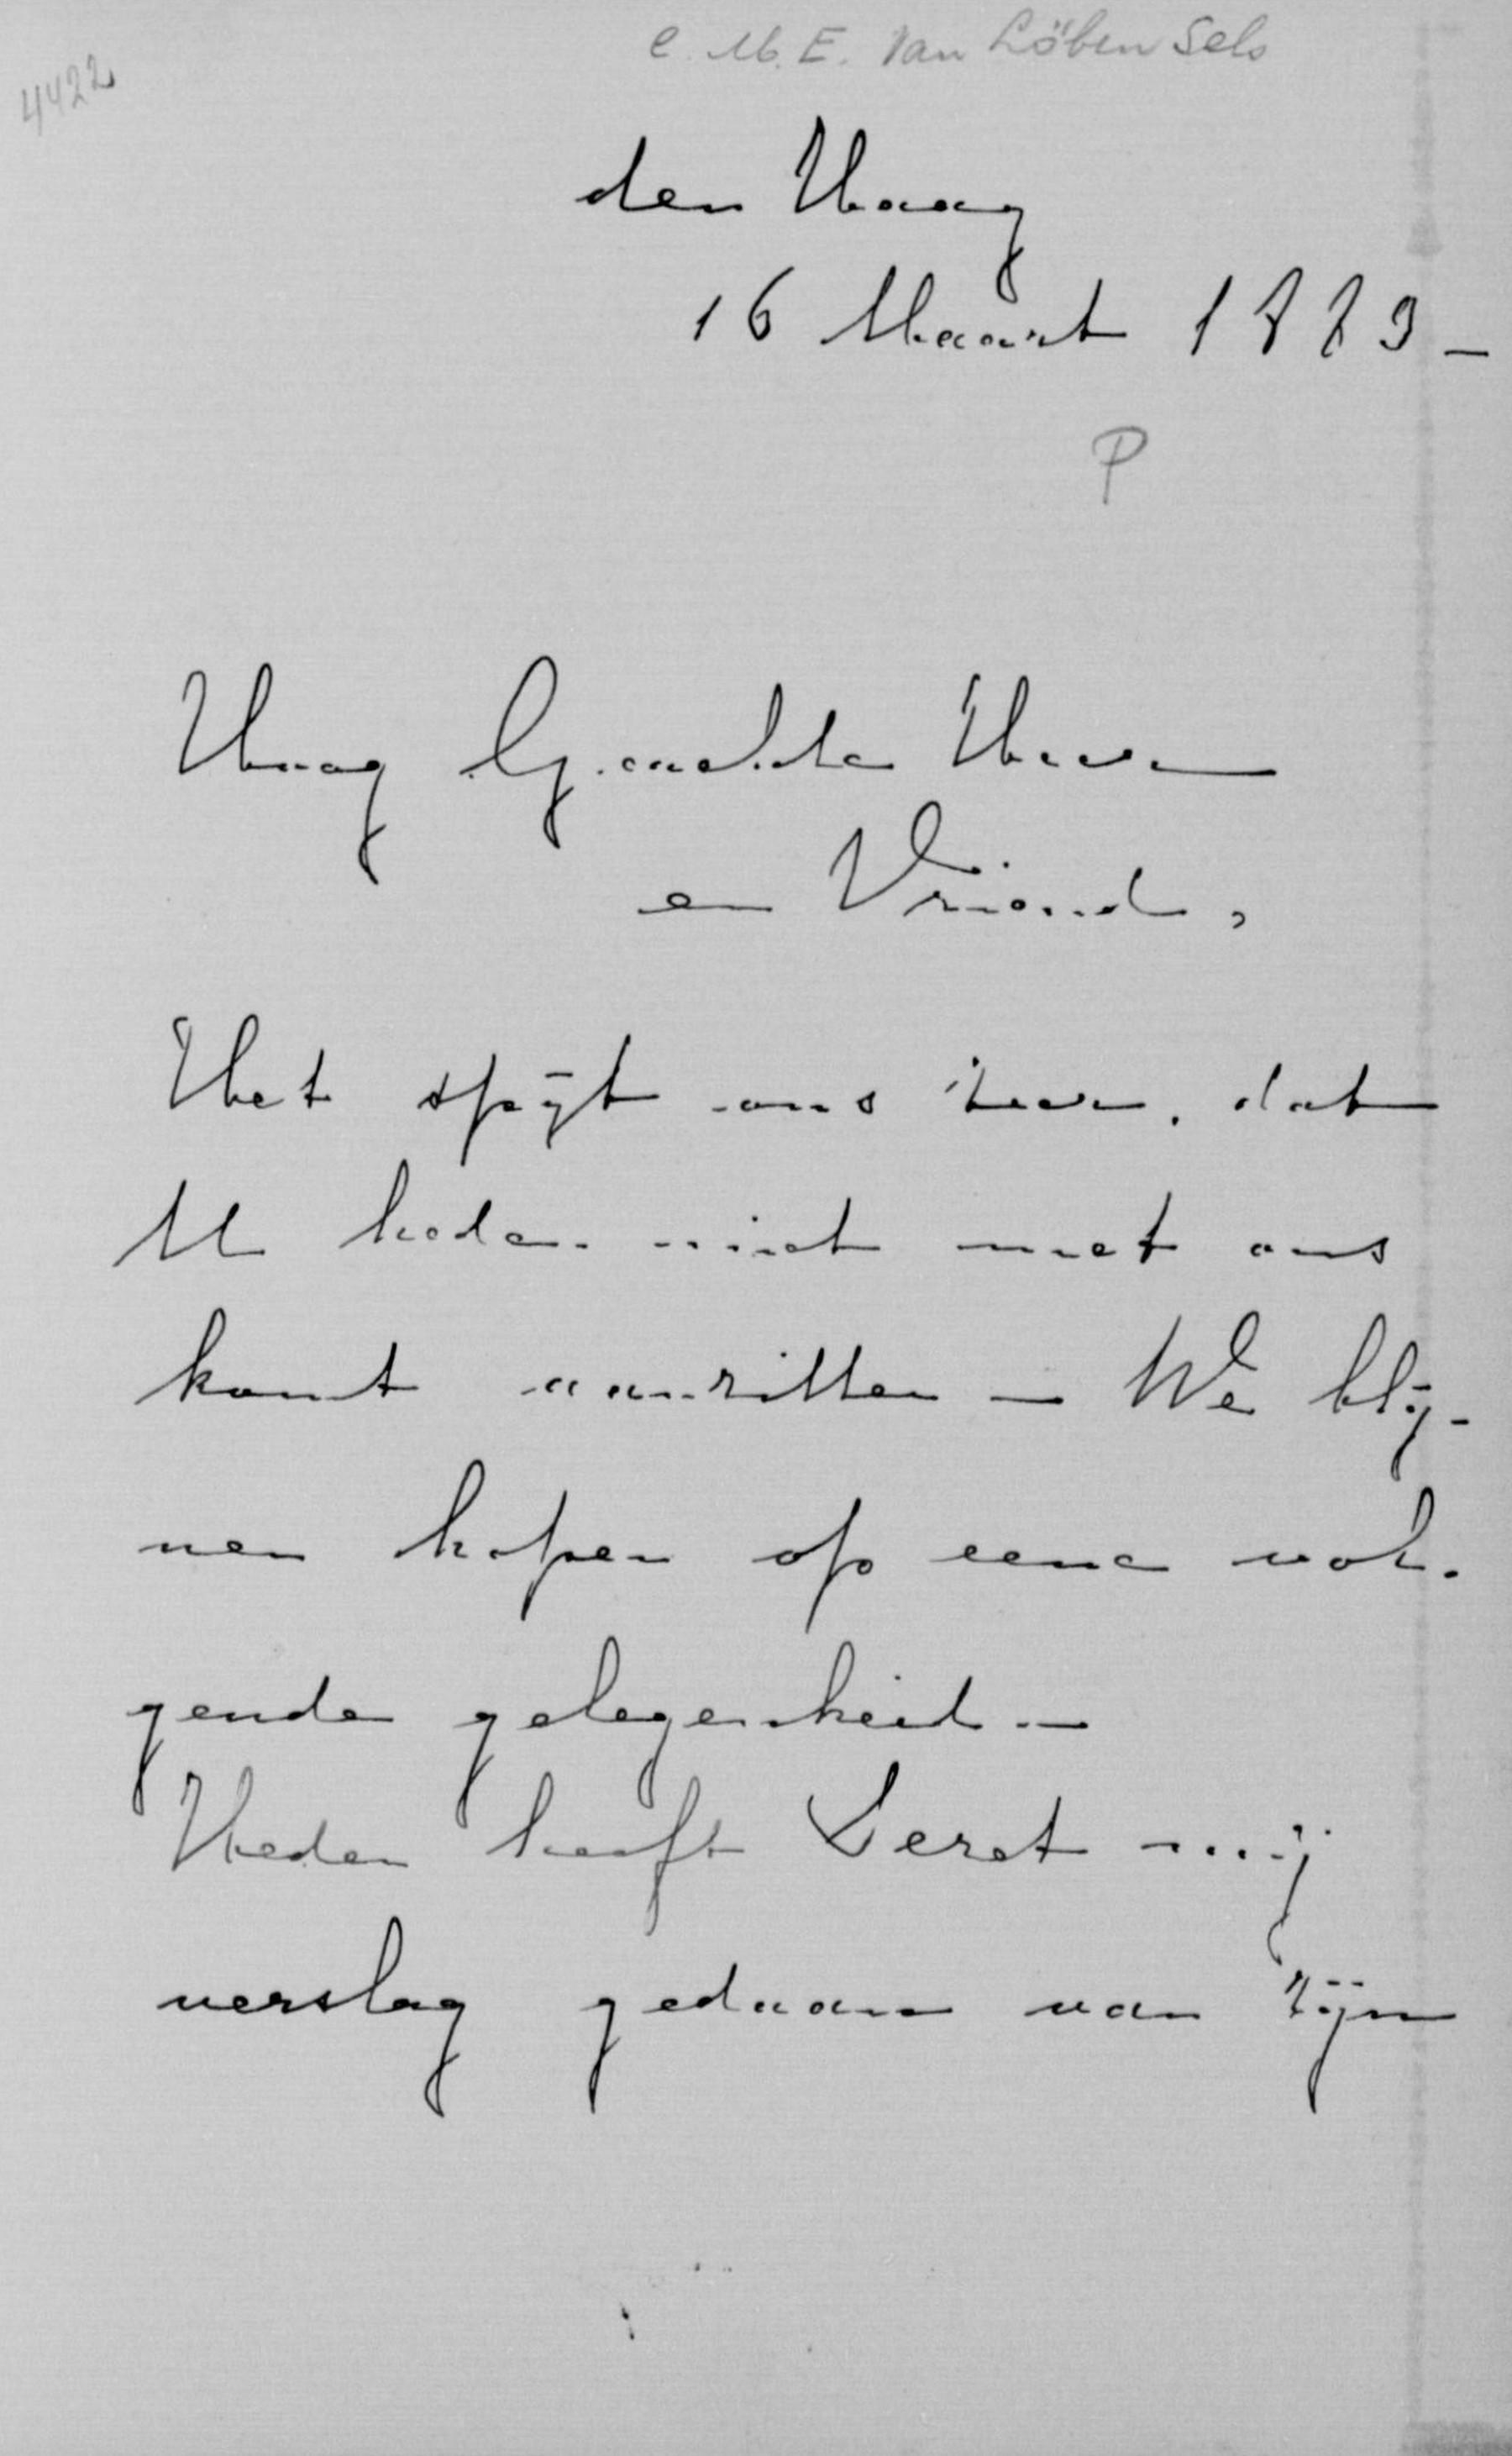 C. M. E. van Löben Sels
4422
den Haag
16 Maart 1889 -
P
Hoog Geachte Heer
en Vriend,
Het spijt ons zeer, dat
U heden niet met ons
kunt aanzitten - We blij-
ven hopen op eene vol-
gende gelegenheid -
Heden heeft Seret mij
verslag gedaan van zijn